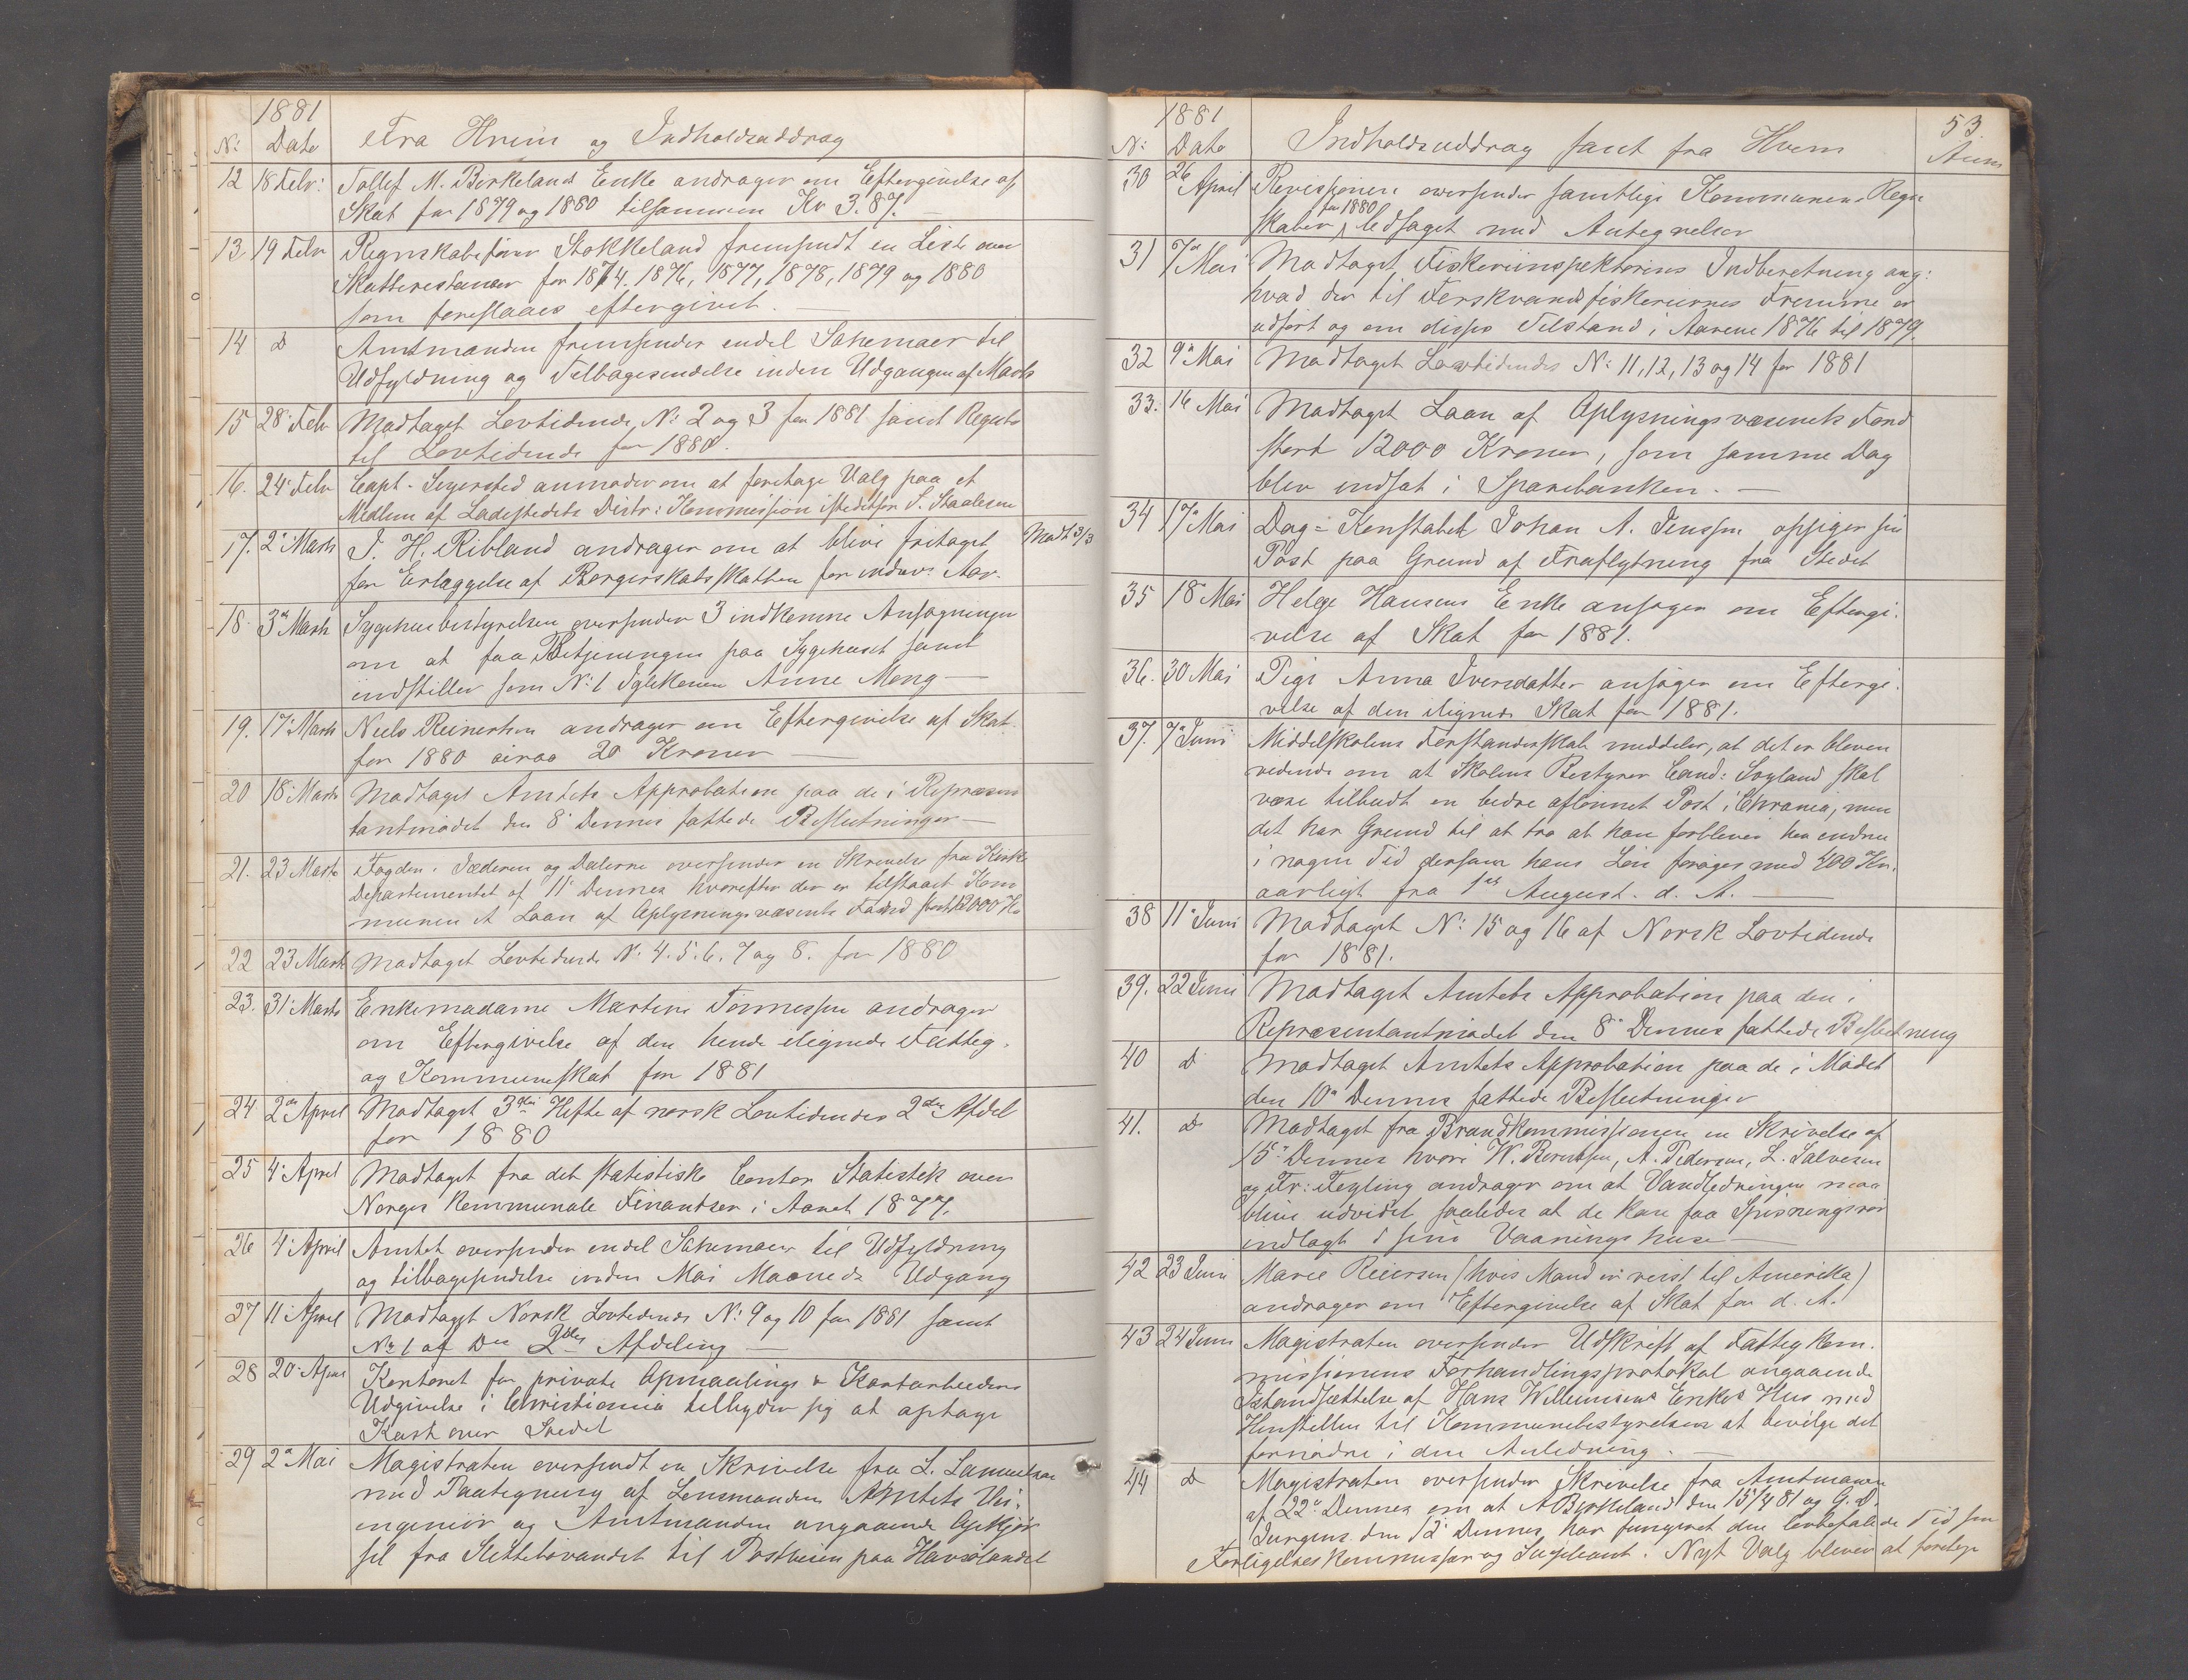 1881
Nº Dato Fra Hvem og Indholdsuddrag
12 18 Febr: Tollef M. Birkelands Enke andrager om Eftergivelse af
Skat for 1879 og 1880 tilsammen Kr 3.87. —
13 19 Febr Regnskabsfører Stokkeland fremsendt en Liste over
Skatterestancer for 1874. 1876, 1877, 1878, 1879 og 1880
som foreslaaes eftergivet. —
14 D Amtmanden fremsender endel Schemaer til
Udfyldning og Tilbagesendelse inden Udgangen af Marts
15 28 Febr Modtaget Lovtidende Nº 2 og 3 for 1881 samt Register
til Lovtidende for 1880.
16. 24 Febr Capt. Segersted anmoder om at foretage Valg paa et
Medlem af Ladestedets Distr: Kommission istedetfor S. Staalesen
17. 2 Marts J. H. Ribland andrager om at blive fritaget Modt 3/3
for Erlæggelse af Borgerskabsskatten for indev: Aar.
18. 3 Marts Sygehusbestyrelsen oversender 3 indkomne Ansøgninger
om at faa Betjeningen paa Sygehuset samt
indstiller som Nº 1 Pigen Anne Mong —
19. 17 Marts Niels Reinertsen andrager om Eftergivelse af Skat
for 1880 circa 20 Kroner —
20 18 Marts Modtaget Amtets Approbation paa de i Repræsen
tantmødet den 8 Dennes fattede Beslutninger —
21. 23 Marts Fogden i Jæderen og Dalerne oversender en Skrivelse fra Kirke
Departementet af 11 Dennes hvorefter der er tilstaaet Kom
munen et Laan af Oplysningsvæsenets Fond stort 12000 Kr
22 23 Marts Modtaget Lovtidende Nº 4. 5. 6. 7 og 8. for 1880
23. 31 Marts Enkemadame Martine Tønnessen andrager
om Eftergivelse af den hende ilignede Fattig-
og Kommuneskat for 1881
24 2den April Modtaget 3die Hefte af norsk Lovtidendes 2den Afdel
for 1880
25 4 April Modtaget fra det statistiske Contor Statistik over
Norges kommunale Finantser i Aaret 1877.
26 4 April Amtet oversender endel Schemaer til Udfyldning
og tilbagesendelse inden Mai Maaneds Udgang
27 11 April Modtaget Norsk Lovtidende Nº 9 og 10 for 1881 samt
Nº 1 af Dens 2den Afdeling —
28 20 April Kontoret for private Opmaalings & Kartarbeiders
Udgivelse i Christiania tilbyder sig at optage
Kart over Stedet
29 2 Mai Magistraten oversendt en Skrivelse fra L. Samuelsen
med Paategning af Lensmanden Amtets Vei-
ingeniør og Amtmanden angaaende Opkjør
sel fra Slettebøvandet til Postveien paa Havsølandet
53.
1881
Nº Dato Indholdsuddrag samt fra Hvem Anm
30 26 April Revisjonen oversender samtlige Kommunens Regn
for 1880
skaber, ledsaget med Antegnelser
31 7 Mai Modtaget Fiskeriinspektørens Indberetning ang:
hvad der til Ferskvandsfiskeriernes Fremme er
udført og om disses Tilstand i Aarene 1876 til 1879.
32 9 Mai Modtaget Lovtidendes Nº 11, 12, 13 og 14 for 1881
33. 16 Mai Modtaget Laan af Oplysningsvæsenets Fond
stort 12000 Kroner, som samme Dag
blev indsat i Sparebanken. —
34 17 Mai Dag-Konstabel Johan A. Jenssen opsiger sin
Post paa Grund af Fraflytning fra Stedet
35 18 Mai Helge Hansens Enke ansøger om Eftergi-
velse af Skat for 1881.
36. 30 Mai Pige Anna Iversdatter ansøger om Eftergi-
velse af den ilignede Skat for 1881.
37. 7 Juni Middelskolens Forstanderskab meddeler, at det er bleven
vidende om at Skolens Bestyrer Cand: Sogland skal
være tilbudt en bedre aflønnet Post i Chrania, men
det har Grund til at tro at han forbliver her endnu
i nogen Tid dersom hans Løn forøges med 400 Kr.
aarligt fra 1ste August. d. A. —
38 11 Juni Modtaget Nº 15 og 16 af Norsk Lovtidende
for 1881.
39. 22 Juni Modtaget Amtets Approbation paa den i
Repræsentantmødet den 8 Dennes fattede Beslutning
40 D Modtaget Amtets Approbation paa de i Mødet
den 10 Dennes fattede Beslutninger
41. D Modtaget fra Brandkommissionen en Skrivelse af
15 Dennes hvori W. Berentsen, A. Pedersen, L. Salvesen
og Fr: Feyling andrager om at Vandledningen maa
blive udvidet saaledes at de kan faa Spisningsrør
indlagt i sine Vaaningshuse —
42 23 Juni Marie Reiersen (hvis Mand er reist til Amerika)
andrager om Eftergivelse af Skat for d. A.
43 24 Juni Magistraten oversender Udskrift af Fattigkom-
missionens Forhandlingsprotokol angaaende
Istandsættelse af Hans Willumsens Enkes Hus med
Henstillen til Kommunebestyrelsen at bevilge det
fornødne i den Anledning. —
44 D Magistraten oversender Skrivelse fra Amtmanden
af 22 Dennes om at A Byrkeland den 15/4 81 og G. D.
Jurgens den 12 Dennes har fungeret den lovbefalede Tid som
Forligelseskommissær og Suppleant. Nyt Valg bliver at foretage